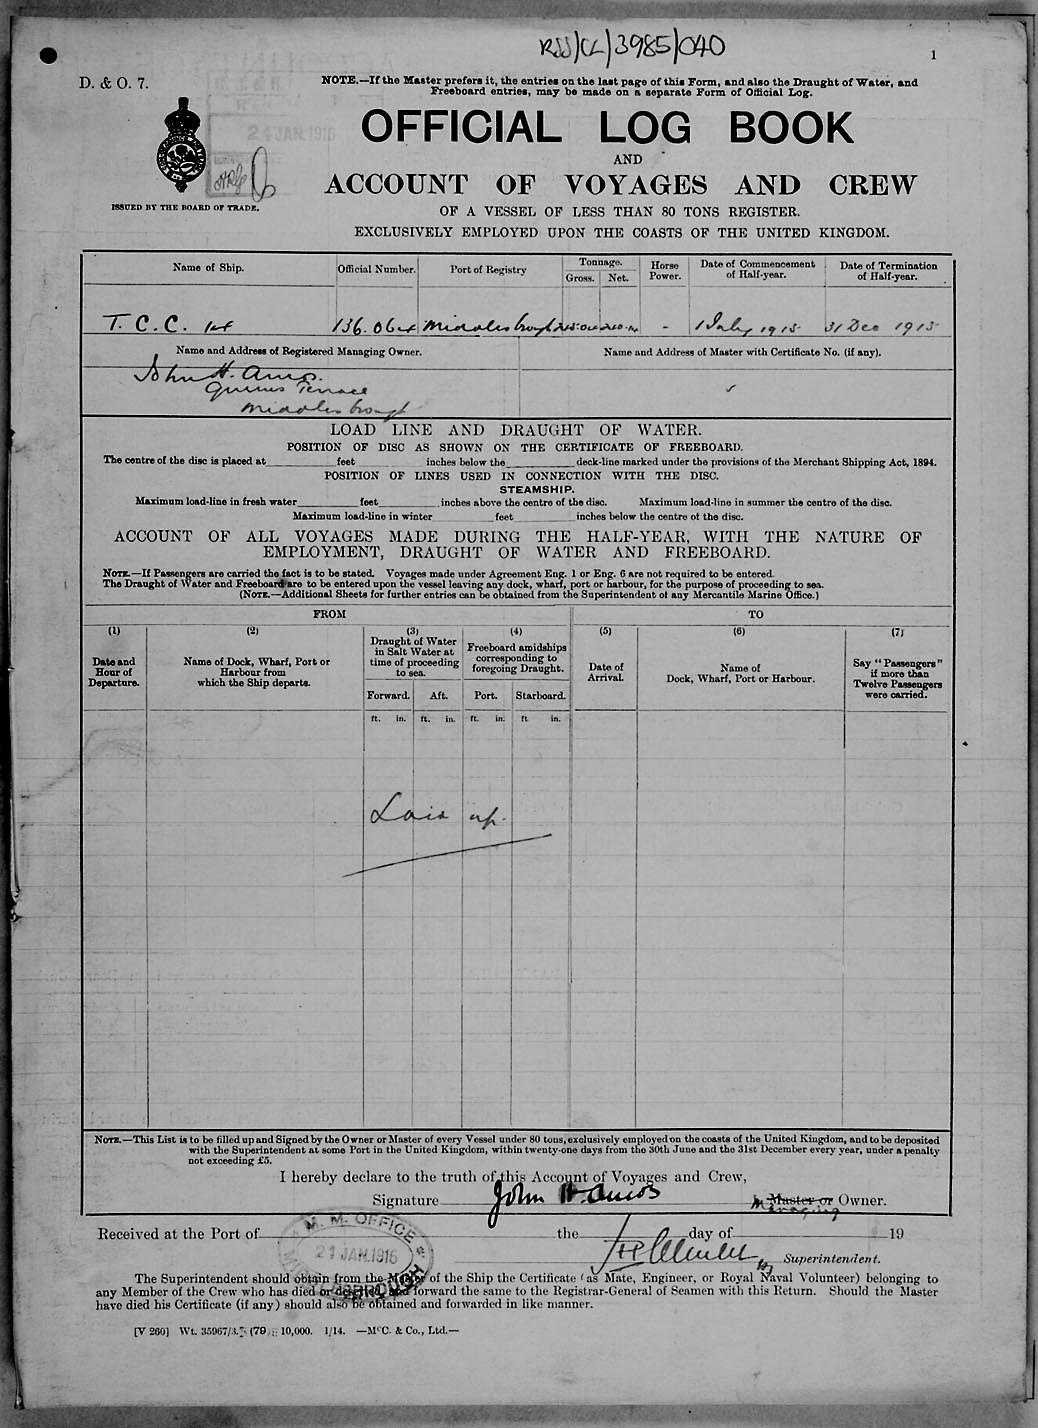 RSS/CL/3985/040
1
D. & O. 7.
NOTE.—If the Master prefers it, the entries on the last page of this Form, and also the Draught of Water, and
Freeboard entries, may be made on a separate Form of Official Log.
24 JAN. 1916
OFFICIAL LOG BOOK
AND
ACCOUNT OF VOYAGES AND CREW
ISSUED BY THE BOARD OF TRADE.
OF A VESSEL OF LESS THAN 80 TONS REGISTER.
EXCLUSIVELY EMPLOYED UPON THE COASTS OF THE UNITED KINGDOM.
Name of Ship. Official Number. Port of Registry Tonnage. Horse Power. Date of Commencement of Half-year. Date of Termination of Half-year.
Gross. Net.
T. C. C. Middlesbrough - 1 July 1915 31 Dec 1915
Name and Address of Registered Managing Owner. Name and Address of Master with Certificate No. (if any).
John H. Amos.
Terrace
Middlesbrough
LOAD LINE AND DRAUGHT OF WATER.
POSITION OF DISC AS SHOWN ON THE CERTIFICATE OF FREEBOARD.
The centre of the disc is placed at feet inches below the deck-line marked under the provisions of the Merchant Shipping Act, 1894.
POSITION OF LINES USED IN CONNECTION WITH THE DISC.
STEAMSHIP.
Maximum load-line in fresh water feet inches above the centre of the disc. Maximum load-line in summer the centre of the disc.
Maximum load-line in winter feet inches below the centre of the disc.
ACCOUNT OF ALL VOYAGES MADE DURING THE HALF-YEAR, WITH THE NATURE OF
EMPLOYMENT, DRAUGHT OF WATER AND FREEBOARD.
NOTE.—If Passengers are carried the fact is to be stated. Voyages made under Agreement Eng. 1 or Eng. 6 are not required to be entered.
The Draught of Water and Freeboard are to be entered upon the vessel leaving any dock, wharf, port or harbour, for the purpose of proceeding to sea.
(NOTE.—Additional Sheets for further entries can be obtained from the Superintendent of any Mercantile Marine Office.)
FROM TO
(1) (2) (3) (4) (5) (6) (7)
Date and Hour of Departure.
Name of Dock, Wharf, Port or Harbour from which the Ship departs.
Draught of Water in Salt Water at time of proceeding to sea.
Freeboard amidships corresponding to foregoing Draught.
Date of Arrival.
Name of Dock, Wharf, Port or Harbour.
Say "Passengers" if more than Twelve Passengers were carried.
Forward. Aft. Port. Starboard.
ft. in. ft. in. ft. in. ft in.
Laid up.
NOTE.—This List is to be filled up and Signed by the Owner or Master of every Vessel under 80 tons, exclusively employed on the coasts of the United Kingdom, and to be deposited
with the Superintendent at some Port in the United Kingdom, within twenty-one days from the 30th June and the 31st December every year, under a penalty
not exceeding £5.
I hereby declare to the truth of this Account of Voyages and Crew,
Signature John H. Amos Master or Owner.
Managing
Received at the Port of the day of 19
M. M. OFFICE
21 JAN. 1916
MIDDLESBROUGH
Superintendent.
The Superintendent should obtain from the Master of the Ship the Certificate (as Mate, Engineer, or Royal Naval Volunteer) belonging to
any Member of the Crew who has died or deserted, and forward the same to the Registrar-General of Seamen with this Return. Should the Master
have died his Certificate (if any) should also be obtained and forwarded in like manner.
[V 260] Wt. 35967/3. (79) 10,000. 1/14. —McC. & Co., Ltd.—